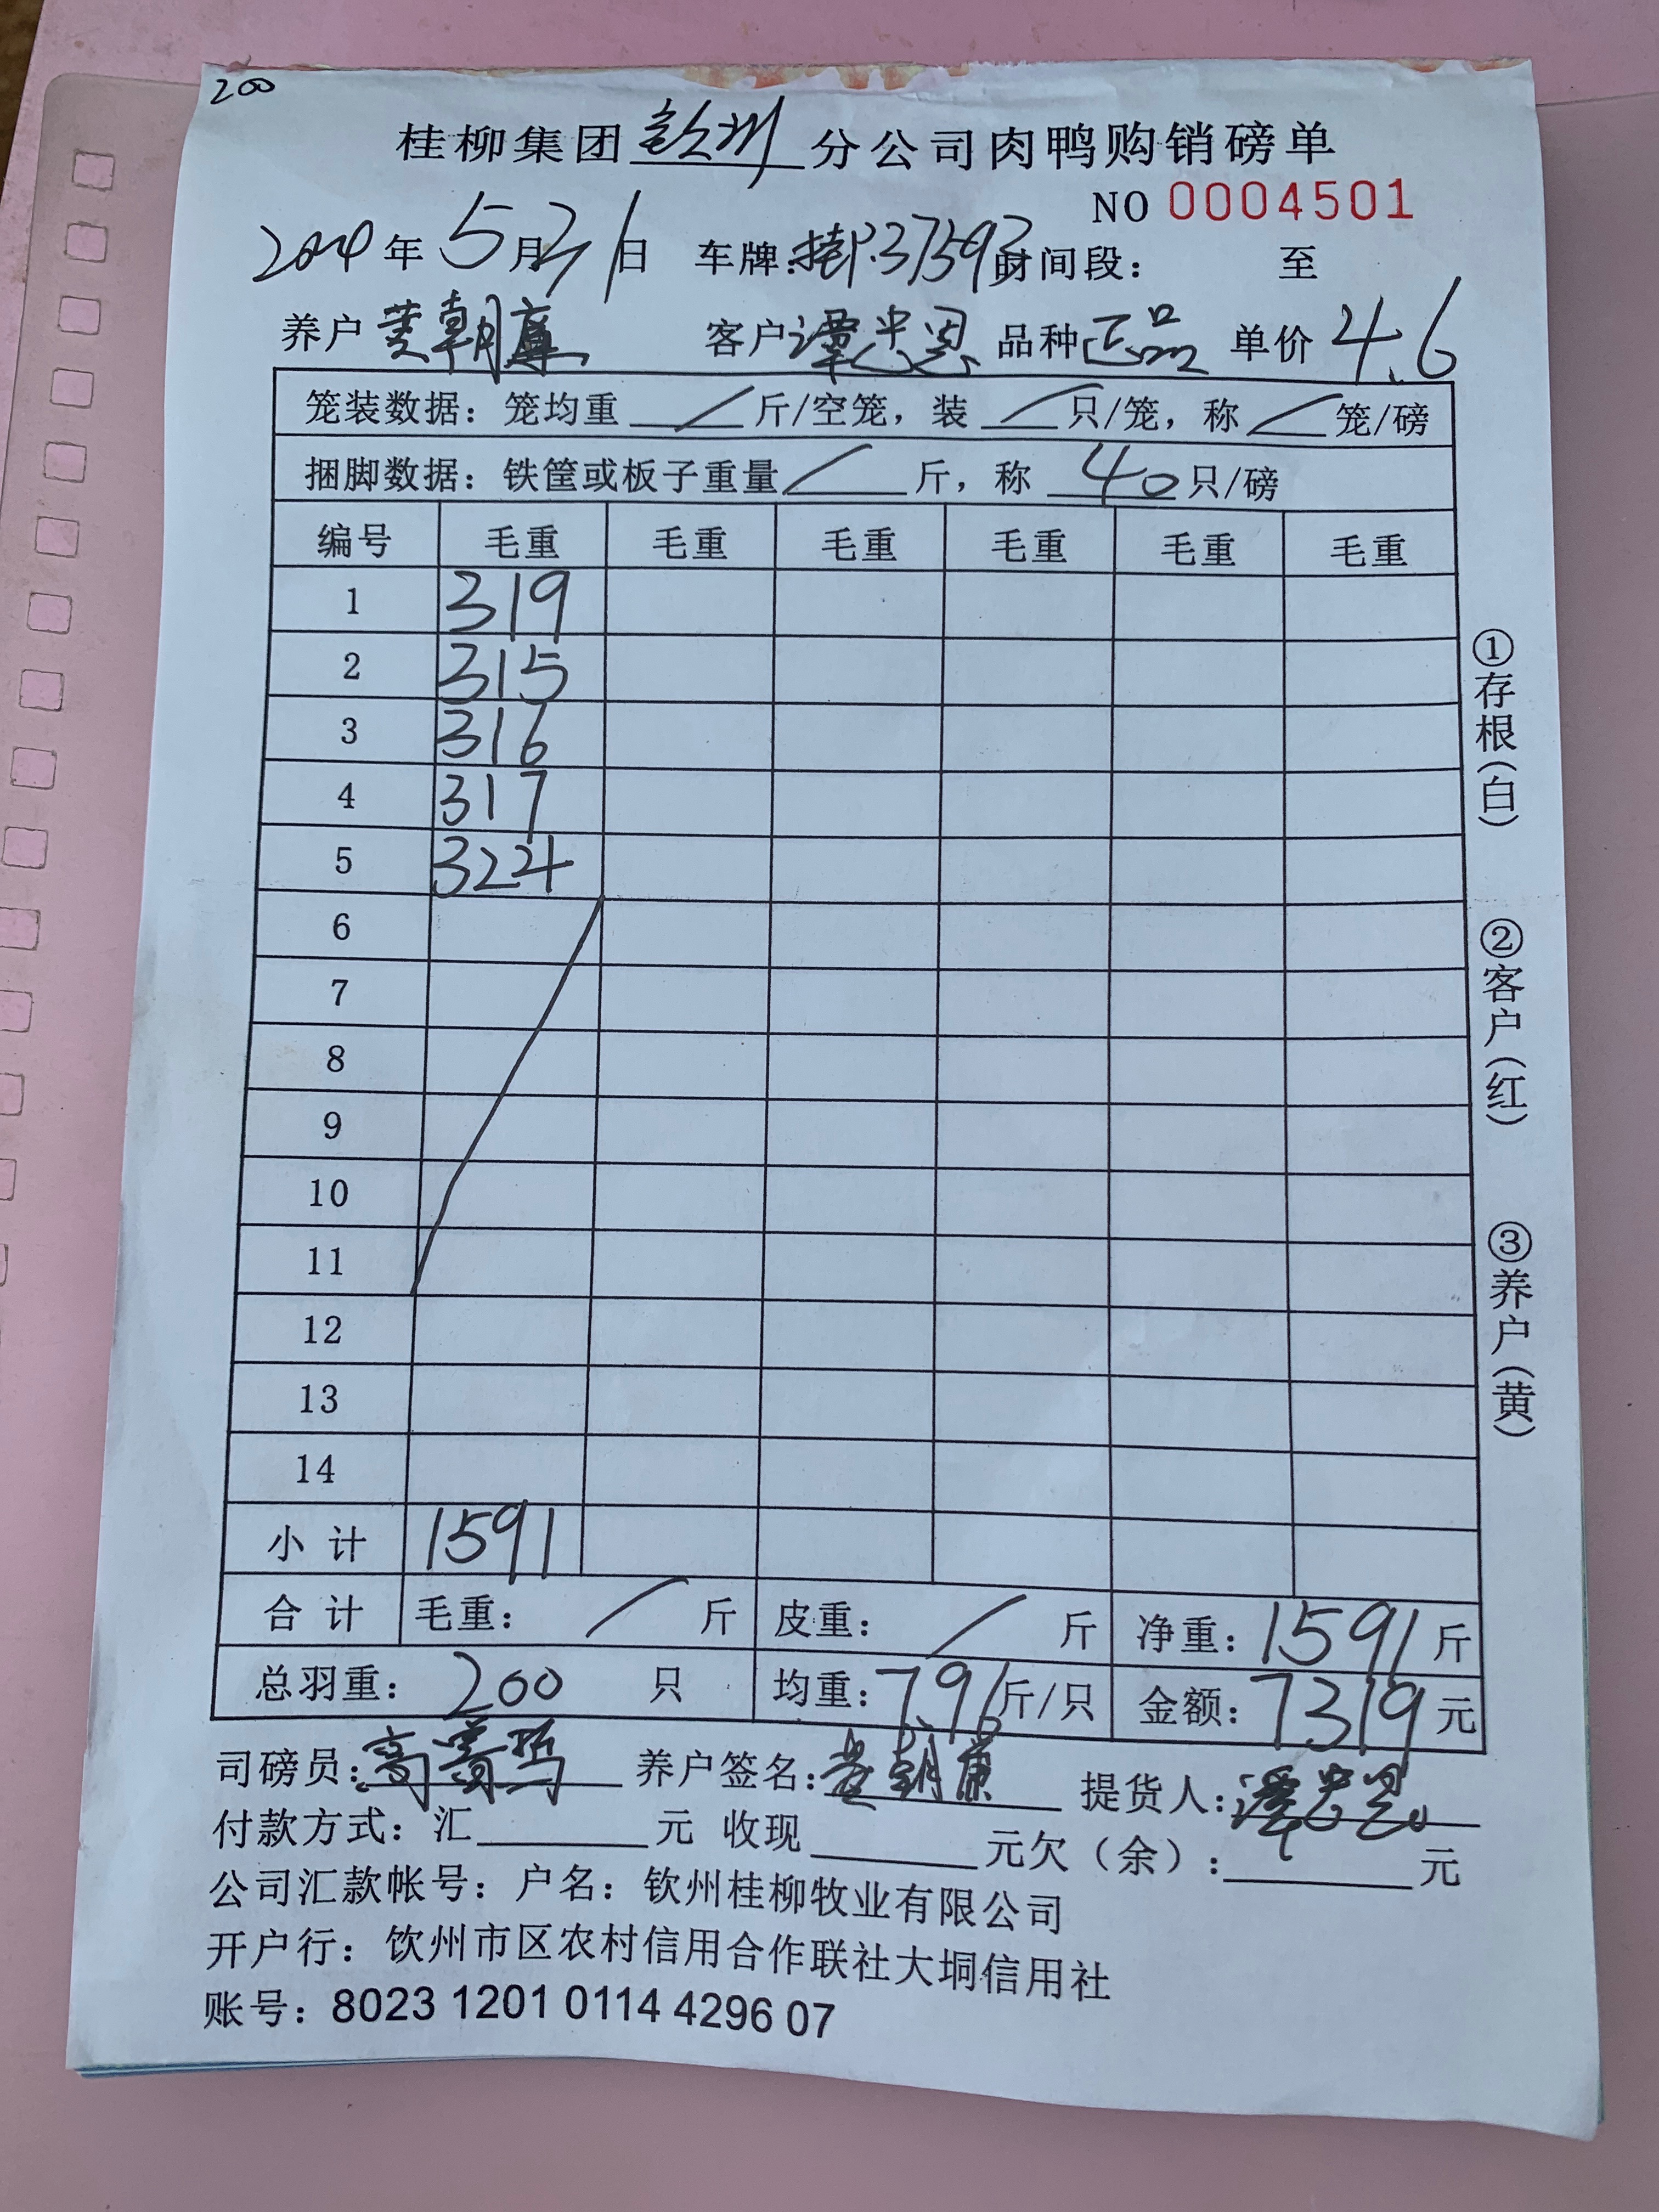 200
桂柳集团钦州分公司肉鸭购销磅单
NO 0004501
2024年5月21日 车牌:桂P.37593时间段: 至
养户黄朝廉 客户谭忠恩 品种正品 单价4.6
笼装数据:笼均重 / 斤/空笼,装 / 只/笼,称 / 笼/磅
捆脚数据:铁筐或板子重量 / 斤,称 40 只/磅
编号 毛重 毛重 毛重 毛重 毛重 毛重
1 319
2 315
3 316
4 317
5 324
6
7
8
9
10
11
12
13
14
小计 1591
合计 毛重: / 斤 皮重: / 斤 净重:1591斤
总羽重: 200 只 均重:7.96斤/只 金额:7319元
司磅员:高 养户签名:黄朝廉 提货人:谭忠恩
付款方式:汇 元 收现 元欠(余): 元
公司汇款帐号:户名:钦州桂柳牧业有限公司
开户行:钦州市区农村信用合作联社大垌信用社
账号:8023 1201 0114 4296 07
①存根(白)
②客户(红)
③养户(黄)